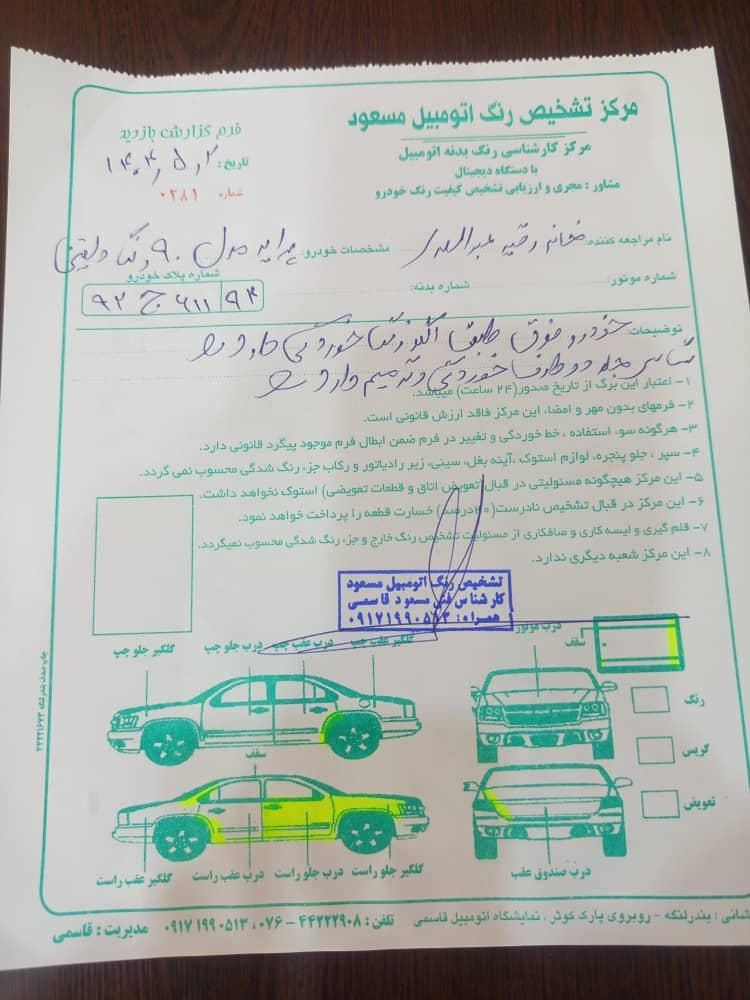 مرکز تشخیص رنگ اتومبیل مسعود
مرکز کارشناسی رنگ بدنه اتومبیل
با دستگاه دیجیتال
مشاور : مجری و ارزیابی تشخیص کیفیت رنگ خودرو
فرم گزارش بازدید
تاریخ: ۱۴۰۴/۵/۲
شماره ۰۲۸۱
نام مراجعه کننده: خانم رقیه عبدالهی مشخصات خودرو: پراید مدل ۹۰ رنگ
شماره موتور: شماره بدنه: شماره پلاک خودرو
۹۲ ج ۶۱۱ ۹۴
توضیحات: خودرو فوق طبق آنالیز رنگ خوردگی دارد
شاسی جلو دو طرف خوردگی و ترمیم دارد
۱- اعتبار این برگ از تاریخ صدور (۲۴ ساعت) میباشد.
۲- فرمهای بدون مهر و امضاء، این مرکز فاقد ارزش قانونی است.
۳- هرگونه سوء استفاده ، خط خوردگی و تغییر در فرم ضمن ابطال فرم موجود پیگرد قانونی دارد.
۴- سپر ، جلو پنجره، لوازم استوک ،آینه بغل، سینی، زیر رادیاتور و رکاب جزء رنگ شدگی محسوب نمی گردد.
۵- این مرکز هیچگونه مسئولیتی در قبال (تعویض اتاق و قطعات تعویضی) استوک نخواهد داشت.
۶- این مرکز در قبال تشخیص نادرست (۲۰درصد) خسارت قطعه را پرداخت خواهد نمود.
۷- قلم گیری و لیسه کاری و صافکاری از مسئولیت تشخیص رنگ خارج و جزء رنگ شدگی محسوب نمیگردد.
۸- این مرکز شعبه دیگری ندارد.
تشخیص رنگ اتومبیل مسعود
کارشناس فنی مسعود قاسمی
همراه: ۰۹۱۷۱۹۹۰۵۱۳
درب موتور
سقف
گلگیر عقب چپ درب عقب چپ درب جلو چپ گلگیر جلو چپ
رنگ
گریس
تعویض
سقف
گلگیر جلو راست درب جلو راست درب عقب راست گلگیر عقب راست
درب صندوق عقب
شانی : بندرلنگه - روبروی پارک کوثر ، نمایشگاه اتومبیل قاسمی تلفن : ۴۴۲۲۲۹۰۸ - ۰۷۶ ، ۰۹۱۷ ۱۹۹ ۰۵۱۳ مدیریت : قاسمی